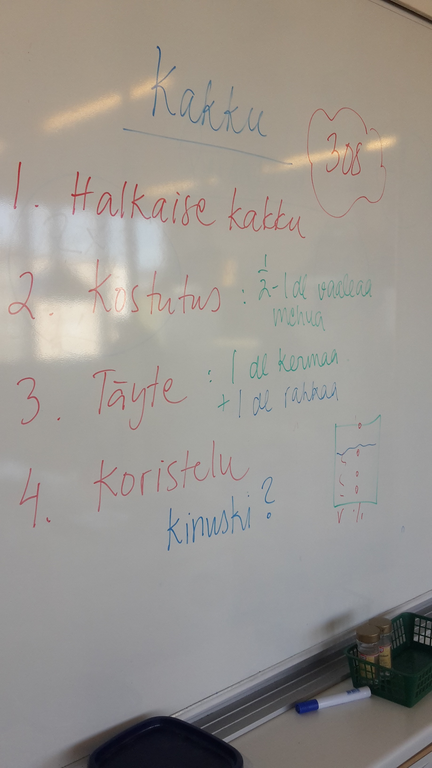 Kakku
308
1. Halkaise kakku
2. Kostutus : 1/2 - 1 dl vaaleaa
mehua
3. Täyte : 1 dl kermaa
+ 1 dl rahkaa
4. Koristelu
kinuski?